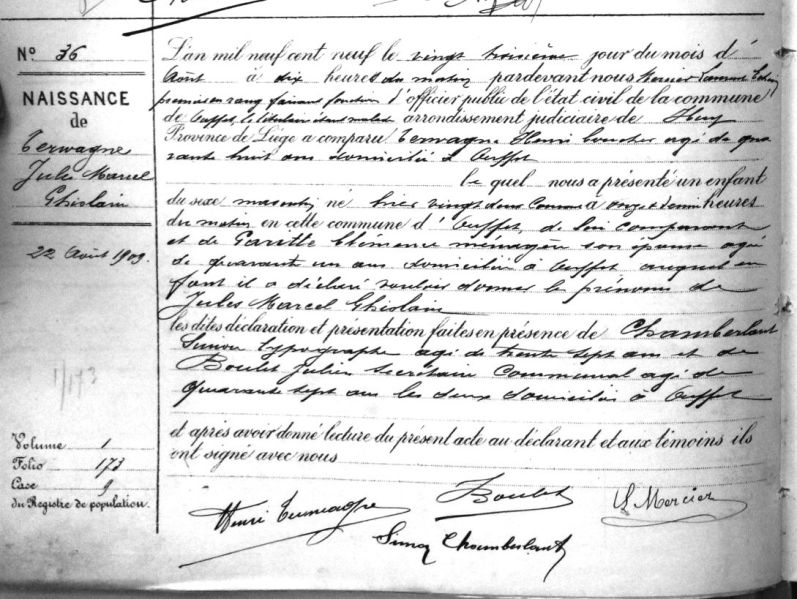 N° 36
NAISSANCE
de
Terwagne
Jules Marcel
Ghislain
22 Août 1909.
1/173
Volume 1
Folio 173
Case 9
du Registre de population.
L'an mil neuf cent neuf le vingt troisième jour du mois d'
Août à dix heures du matin pardevant nous Mercier
premier en rang faisant fonction d'officier public de l'état civil de la commune
de Ouffet, le titulaire étant malade arrondissement judiciaire de Huy
Province de Liége a comparu Terwagne Henri âgé de qua
rante huit ans domicilié à Ouffet
le quel nous a présenté un enfant
du sexe masculin né hier vingt deux Courant à onze et demi heures
du matin en cette commune d'Ouffet, de lui comparant
et de Clémence ménagère son épouse agée
de quarante un ans domiciliée à Ouffet auquel en
fant il a déclaré vouloir donner les prénoms de
Jules Marcel Ghislain
les dites déclaration et présentation faites en présence de Chamberlant
Simon typographe agé de trente sept ans et de
Boulet Julien Secrétaire Communal agé de
quarante sept ans les deux domiciliés à Ouffet
et après avoir donné lecture du présent acte au déclarant et aux témoins ils
ont signé avec nous
Henri Terwagne Boulet Mercier
Simon Chamberlant